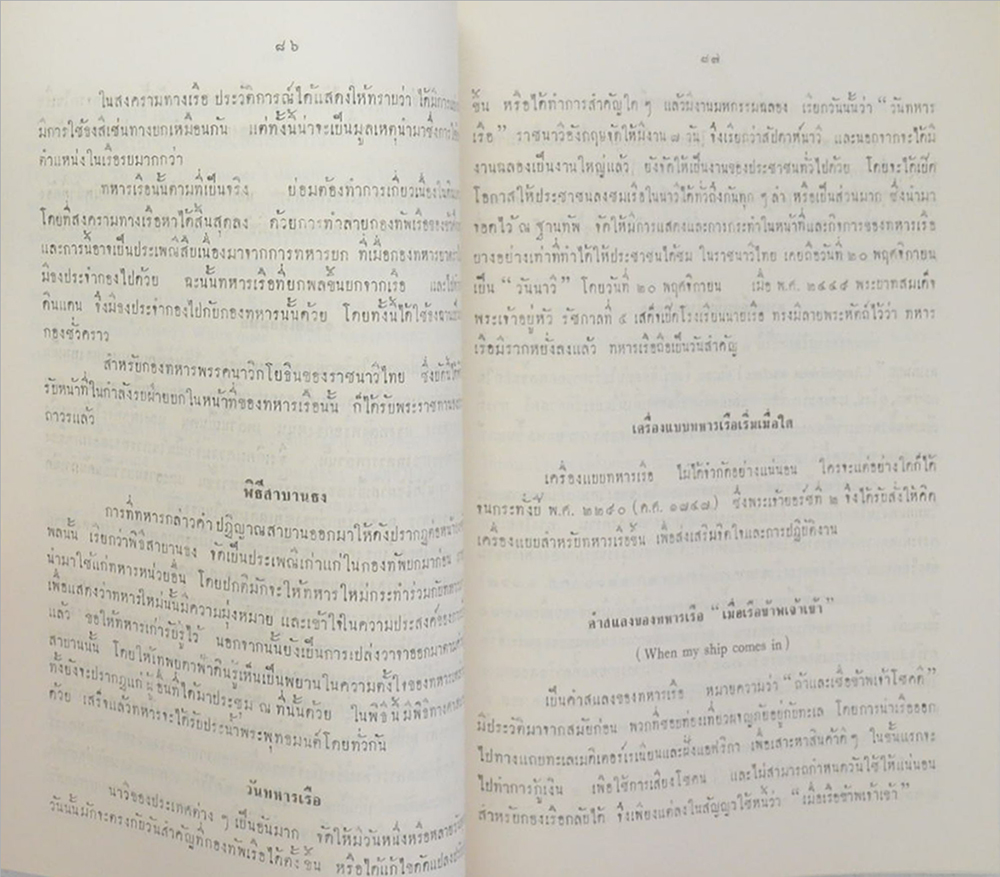 ๘๖
ในสงครามทางเรือ ประวัติการณ์ได้แสดงให้ทราบว่า ได้มีการ
มีการใช้ธงสีเช่นทางบกเหมือนกัน แต่ทั้งนี้น่าจะเป็นมูลเหตุนำมาซึ่งการ
ตำแหน่งในเรือรบมากกว่า
ทหารเรือนั้นตามที่เป็นจริง ย่อมต้องทำการเกี่ยวเนื่องใน
โดยที่สงครามทางเรือหาได้สิ้นสุดลง ด้วยการทำลายกองทัพเรือของ
และการนี้อาจเป็นประเพณีสืบเนื่องมาจากการทหารบก ที่เมื่อกองทหาร
มีธงประจำกองไปด้วย ฉะนั้นทหารเรือที่ยกพลขึ้นบกจากเรือ และ
ดินแดน จึงมีธงประจำกองไปกับกองทหารนั้นด้วย โดยทั้งนี้ได้ใช้ธง
กองชั่วคราว
สำหรับกองทหารพรรคนาวิกโยธินของราชนาวีไทย ซึ่ง
รับหน้าที่ในกำลังรบฝ่ายบกในหน้าที่ของทหารเรือนั้น ก็ได้รับพระราชทาน
ถาวรแล้ว
พิธีสาบานธง
การที่ทหารกล่าวคำปฏิญาณสาบานออกมาให้ดังปรากฏต่อหน้า
พลนั้น เรียกว่าพิธีสาบานธง จัดเป็นประเพณีเก่าแก่ในกองทัพบกมาก่อน
นำมาใช้แก่ทหารหน่วยอื่น โดยปกติมักจะให้ทหารใหม่กระทำร่วมกับ
เพื่อแสดงว่าทหารใหม่นั้นมีความมุ่งหมาย และเข้าใจในความประสงค์ของการ
แล้ว ขอให้ทหารเก่ารับรู้ไว้ นอกจากนั้นยังเป็นการเปล่งวาจาออกมาตาม
สาบานนั้น โดยให้ทพยดาฟ้าดินรู้เห็นเป็นพยานในความตั้งใจของทหาร
ทั้งยังจะปรากฏแก่ผู้อื่นที่ได้มาประชุม ณ ที่นั้นด้วย ในพิธีนี้มีพิธีทางศาสนา
ด้วย เสร็จแล้วทหารจะได้รับประน้ำพระพุทธมนต์โดยทั่วกัน
วันทหารเรือ
นาวีของประเทศต่าง ๆ เป็นอันมาก จัดให้มีวันหนึ่งหรือหลาย
วันนั้นมักจะตรงกับวันสำคัญที่กองทัพเรือได้ตั้งขึ้น หรือได้แก้ไขดัดแปลง
๘๗
ขึ้น หรือได้ทำการสำคัญใด ๆ แล้วมีงานมหกรรมฉลอง เรียกวันนั้นว่า “วันทหาร
เรือ” ราชนาวีอังกฤษจัดให้มีงาน ๗ วัน จึงเรียกว่าสัปดาห์นาวี และนอกจากจะได้มี
งานฉลองเป็นงานใหญ่แล้ว ยังจัดให้เป็นงานของประชาชนทั่วไปด้วย โดยจะได้เปิด
โอกาสให้ประชาชนลงชมเรือในนาวีได้ทั่วถึงกันทุก ๆ ลำ หรือเป็นส่วนมาก ซึ่งนำมา
จอดไว้ ณ ฐานทัพ จัดให้มีการแสดงและการกระทำในหน้าที่และกิจการของทหารเรือ
บางอย่างเท่าที่ทำได้ให้ประชาชนได้ชม ในราชนาวีไทย เคยถือวันที่ ๒๐ พฤศจิกายน
เป็น “วันนาวี” โดยวันที่ ๒๐ พฤศจิกายน เมื่อ พ.ศ. ๒๔๔๙ พระบาทสมเด็จ
พระเจ้าอยู่หัว รัชกาลที่ ๕ เสด็จเปิดโรงเรียนนายเรือ ทรงมีลายพระหัตถ์ไว้ว่า ทหาร
เรือมีรากหยั่งลงแล้ว ทหารเรือถือเป็นวันสำคัญ
เครื่องแบบทหารเรือเริ่มเมื่อใด
เครื่องแบบทหารเรือ ไม่ได้จำกัดอย่างแน่นอน ใครจะแต่อย่างใดก็ได้
จนกระทั่งปี พ.ศ. ๒๒๙๐ (ค.ศ. ๑๗๔๗) ซึ่งพระเจ้ายอร์ชที่ ๒ จึงได้รับสั่งให้คิด
เครื่องแบบสำหรับทหารเรือขึ้น เพื่อส่งเสริมจิตใจและการปฏิบัติงาน
คำสแลงของทหารเรือ “เมื่อเรือข้าพเจ้าเข้า”
(When my ship comes in)
เป็นคำสแลงของทหารเรือ หมายความว่า “ถ้าและเมื่อข้าพเจ้าโชคดี”
มีประวัติมาจากสมัยก่อน พวกที่ชอบท่องเที่ยวผจญภัยอยู่กับทะเล โดยการนำเรือออก
ไปทางแถบทะเลเมดิเตอร์เรเนียนและฝั่งแอฟริกา เพื่อเสาะหาสินค้าดีๆ ในชั้นแรกจะ
ไปทำการกู้เงิน เพื่อใช้การเสี่ยงโชคน และไม่สามารถกำหนดวันใช้ให้แน่นอน
สำหรับกองเรือกลับได้ จึงเพียงแต่ลงในสัญญาใช้หนี้ว่า “เมื่อเรือข้าพเจ้าเข้า”